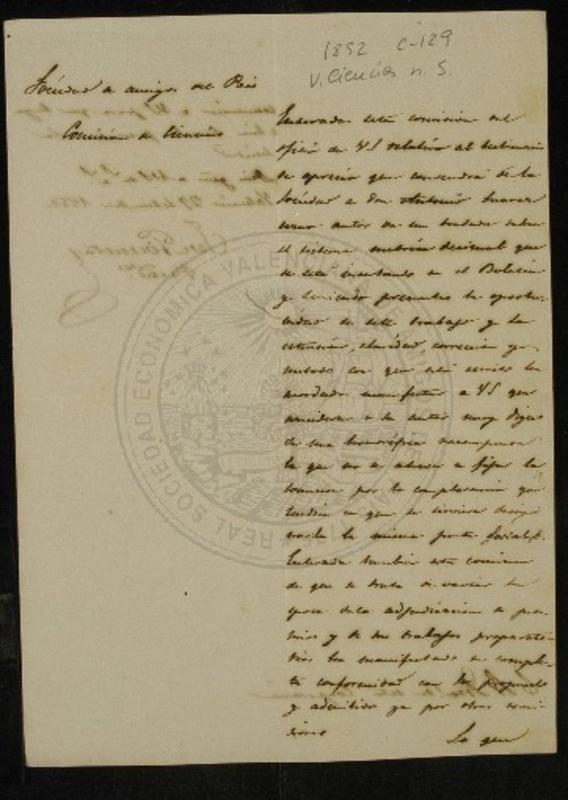 1852 C-129
V. Ciencias n. 5.
Sociedad de amigos del Pais
Comision de Ciencias
Enterada esta comision del
oficio de VS relativo al testimonio
de aprecio que concendra de la
Sociedad a don Antonio Suarez
autor de un tratado sobre
el sistema metrico decimal que
se esta insertando en el Boletin
y teniendo presentes la oportu-
nidad de este trabajo y la
estension, claridad correccion y
metodo con que está escrito ha
acordado manifestar a VS que
considera a su autor muy digno
de una honorifica recompensa
la que no se atreve a fijar la
comision por la complacencia que
tendria en que se sirviera desig-
narla la misma junta
Enterada tambien esta comision
de que se trata de variar la
epoca de la adjudicacion de pre-
mios y de sus trabajos preparato-
rios ha manifestado su comple-
ta conformidad con lo propuesto
y admitido ya por otras comi-
siones
Lo que
REAL SOCIEDAD ECONOMICA VALENCIA